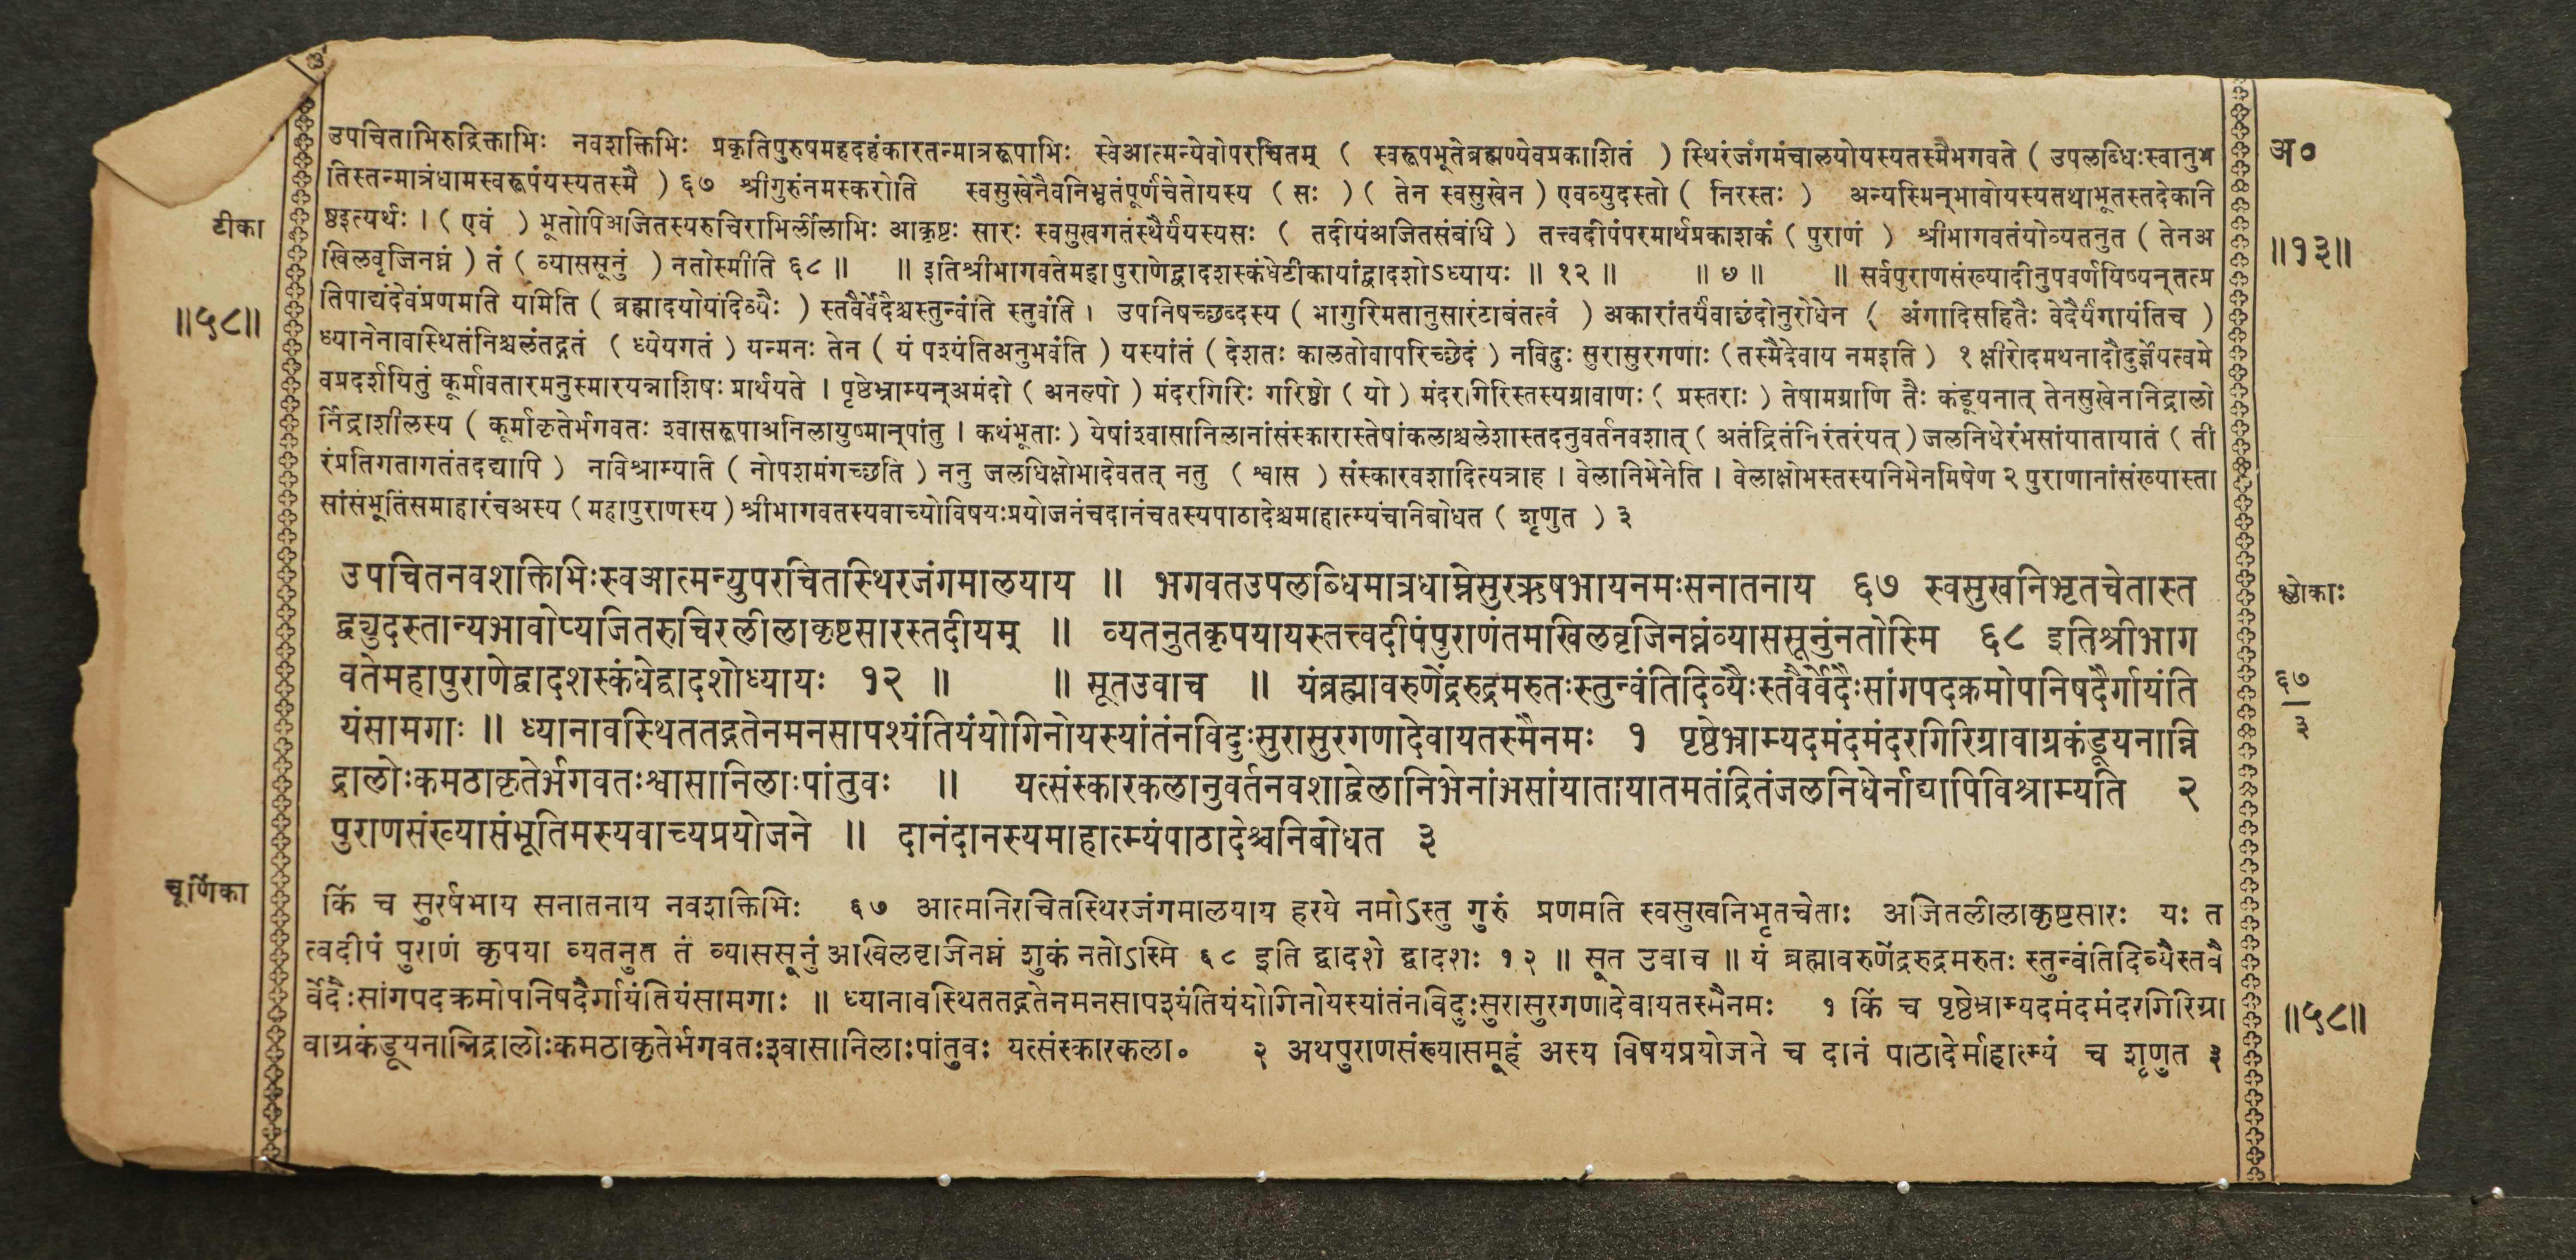 उपचिताभिरुद्रिक्ताभिः नवशक्तिभिः प्रकृतिपुरुषमहदहंकारतन्मात्ररूपाभिः स्वेआत्मन्येवोपरचितम् ( स्वरूपभूतेब्रह्मण्येवप्रकाशितं ) स्थिरंजंगमंचालयोयस्यतस्मैभगवते ( उपलब्धिःस्वानुभ
अ०
तिस्तन्मात्रंधामस्वरूपंयस्यतस्मै ) ६७ श्रीगुरुंनमस्करोति स्वसुखेनैवनिभृतंपूर्णंचेतोयस्य ( सः ) ( तेन स्वसुखेन ) एवव्युदस्तो ( निरस्तः ) अन्यस्मिन्भावोयस्यतथाभूतस्तदेकानि
टीका
ष्ठइत्यर्थः । ( एवं ) भूतोपिअजितस्यरुचिराभिर्लीलाभिः आकृष्टः सारः स्वसुखगतंस्थैर्यंयस्यसः ( तदीयंअजितसंबंधि ) तत्त्वदीपंपरमार्थप्रकाशकं ( पुराणं ) श्रीभागवतंयोव्यतनुत ( तेनअ
॥१३॥
खिलवृजिनघ्नं ) तं ( व्याससूनुं ) नतोस्मीति ६८ ॥ ॥ इतिश्रीभागवतेमहापुराणेद्वादशस्कंधेटीकायांद्वादशोऽध्यायः ॥ १२ ॥ ॥ ७ ॥ ॥ सर्वपुराणसंख्यादीनुपवर्णयिष्यन्तत्प्र
॥५८॥
तिपाद्यंदेवंप्रणमति यमिति ( ब्रह्मादयोयंदिव्यैः ) स्तवैर्वेदैश्चस्तुन्वंति स्तुवंति । उपनिषच्छब्दस्य ( भागुरिमतानुसारंटाबंतत्वं ) अकारांतर्यंवाछंदोनुरोधेन ( अंगादिसहितैः वेदैर्यंगायंतिच )
ध्यानेनावस्थितंनिश्चलंतद्गतं ( ध्येयगतं ) यन्मनः तेन ( यं पश्यंतिअनुभवंति ) यस्यांतं ( देशतः कालतोवापरिच्छेदं ) नविदुः सुरासुरगणाः ( तस्मैदेवाय नमइति ) १ क्षीरोदमथनादौदुर्ज्ञेयत्वमे
वप्रदर्शयितुं कूर्मावतारमनुस्मारयन्नाशिषः प्रार्थयते । पृष्ठेभ्राम्यन्अमंदो ( अनल्पो ) मंदरगिरिः गरिष्ठो ( यो ) मंदरगिरिस्तस्यग्रावाणः ( प्रस्तराः ) तेषामग्राणि तैः कंडूयनात् तेनसुखेननिद्रालो
र्निद्राशीलस्य ( कूर्माकृतेर्भगवतः श्वासरूपाअनिलायुष्मान्पांतु । कथंभूताः ) येषांश्वासानिलानांसंस्कारास्तेषांकलाश्चलेशास्तदनुवर्तनवशात् ( अतंद्रितंनिरंतरंयत् ) जलनिधेरंभसांयातायातं ( ती
रंप्रतिगतागतंतदद्यापि ) नविश्राम्यति ( नोपशमंगच्छति ) ननु जलधिक्षोभादेवतत् नतु ( श्वास ) संस्कारवशादित्यत्राह । वेलानिभेनेति । वेलाक्षोभस्तस्यनिभेनमिषेण २ पुराणानांसंख्यास्ता
सांसंभूतिंसमाहारंचअस्य ( महापुराणस्य ) श्रीभागवतस्यवाच्योविषयःप्रयोजनंचदानंचतस्यपाठादेश्चमाहात्म्यंचनिबोधत ( शृणुत ) ३
उपचितनवशक्तिभिःस्वआत्मन्युपरचितस्थिरजंगमालयाय ॥ भगवतउपलब्धिमात्रधाम्नेसुरऋषभायनमःसनातनाय ६७ स्वसुखनिभृतचेतास्त
श्लोकाः
द्व्युदस्तान्यभावोप्यजितरुचिरलीलाकृष्टसारस्तदीयम् ॥ व्यतनुतकृपयायस्तत्त्वदीपंपुराणंतमखिलवृजिनघ्नंव्याससूनुंनतोस्मि ६८ इतिश्रीभाग
वतेमहापुराणेद्वादशस्कंधेद्वादशोध्यायः १२ ॥ ॥ सूतउवाच ॥ यंब्रह्मावरुणेंद्ररुद्रमरुतःस्तुन्वंतिदिव्यैःस्तवैर्वेदैःसांगपदक्रमोपनिषदैर्गायंति
६७
३
यंसामगाः ॥ ध्यानावस्थिततद्गतेनमनसापश्यंतियंयोगिनोयस्यांतंनविदुःसुरासुरगणादेवायतस्मैनमः १ पृष्ठेभ्राम्यदमंदमंदरगिरिग्रावाग्रकंडूयनान्नि
द्रालोःकमठाकृतेर्भगवतःश्वासानिलाःपांतुवः ॥ यत्संस्कारकलानुवर्तनवशाद्वेलानिभेनांभसांयातायातमतंद्रितंजलनिधेर्नाद्यापिविश्राम्यति २
पुराणसंख्यासंभूतिमस्यवाच्यप्रयोजने ॥ दानंदानस्यमाहात्म्यंपाठादेश्चनिबोधत ३
चूर्णिका
किं च सुरर्षभाय सनातनाय नवशक्तिभिः ६७ आत्मनिरचितस्थिरजंगमालयाय हरये नमोऽस्तु गुरुं प्रणमति स्वसुखनिभृतचेताः अजितलीलाकृष्टसारः यः त
त्वदीपं पुराणं कृपया व्यतनुत तं व्याससूनुं अखिलवृजिनघ्नं शुकं नतोऽस्मि ६८ इति द्वादशे द्वादशः १२ ॥ सूत उवाच ॥ यं ब्रह्मावरुणेंद्ररुद्रमरुतः स्तुन्वंतिदिव्यैस्तवै
र्वेदैःसांगपदक्रमोपनिषदैर्गायंतियंसामगाः ॥ ध्यानावस्थिततद्गतेनमनसापश्यंतियंयोगिनोयस्यांतंनविदुःसुरासुरगणादेवायतस्मैनमः १ किं च पृष्ठेभ्राम्यदमंदमंदरगिरिग्रा
॥५८॥
वाग्रकंडूयनान्निद्रालोःकमठाकृतेर्भगवतःश्वासानिलाःपांतुवः यत्संस्कारकला० २ अथपुराणसंख्यासमूहं अस्य विषयप्रयोजने च दानं पाठादेर्माहात्म्यं च शृणुत ३